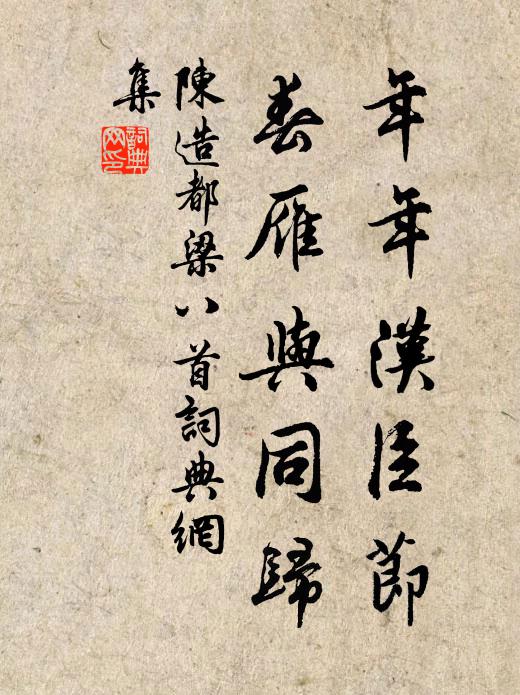 年年漢臣節
春雁與同歸
陳造都梁八首詞典網
集
詞典網印